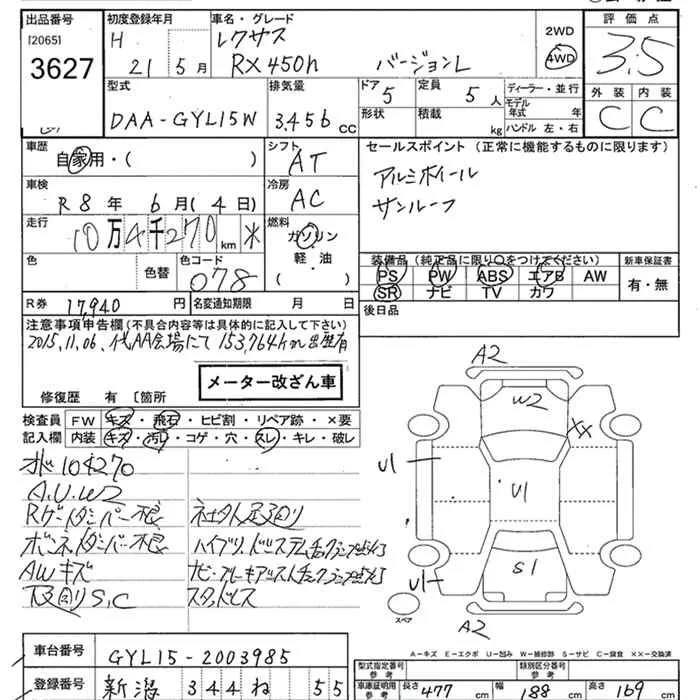 出品番号
[2065]
3627
初度登録年月
H 21 5月
車名・グレード
レクサス
RX450h バージョンL
2WD
4WD
評価点
3.5
外装 内装
C C
型式
DAA-GYL15W
排気量
3456 cc
ドア 5
形状
定員 5 人
積載 kg
ディーラー・並行
モデル年式 年
ハンドル 左・右
車歴
自家用・( )
シフト
AT
車検
R8年 6月(4日)
冷房
AC
走行
10万4千270 km
燃料
ガソリン
軽・油
( ・ )
色
色替
色コード
078
R券 17,940円
名変通知期限 月 日
セールスポイント (正常に機能するものに限ります)
アルミホイール
サンルーフ
装備品(純正品に限り○をつけてください)
PS PW ABS エアB AW
SR ナビ TV カワ
新車保証書
有・無
後日品
注意事項申告欄(不具合内容等は具体的に記入して下さい)
2015,11,06,代AA会場にて153,764km出歴有
メーター改ざん車
修復歴 有 〔箇所
検査員記入欄
FW キズ・飛石・ヒビ割・リペア跡・×要
内装 キズ・汚レ・コゲ・穴・スレ・キレ・破レ
オド104270
A.U.W2
Rゲートダンパー不良
ボンネットダンパー不良
AWキズ
下回りS,C
社外足回り
ハイブリッドシステムチェックランプ点灯
ナビ・ブレーキアシストチェックランプ点灯
スタッドレス
A2
W2
XX
U1
U1
U1
S1
A2
スペア
A=キズ E=エクボ U=凹み W=補修跡 S=サビ C=腐食 ××=交換済
車台番号
GYL15-2003985
登録番号
新潟 344 ね 55
型式指定番号 参考
類別区分番号 参考
車庫証明用 参考
長さ 477 cm
幅 188 cm
高さ 169 cm